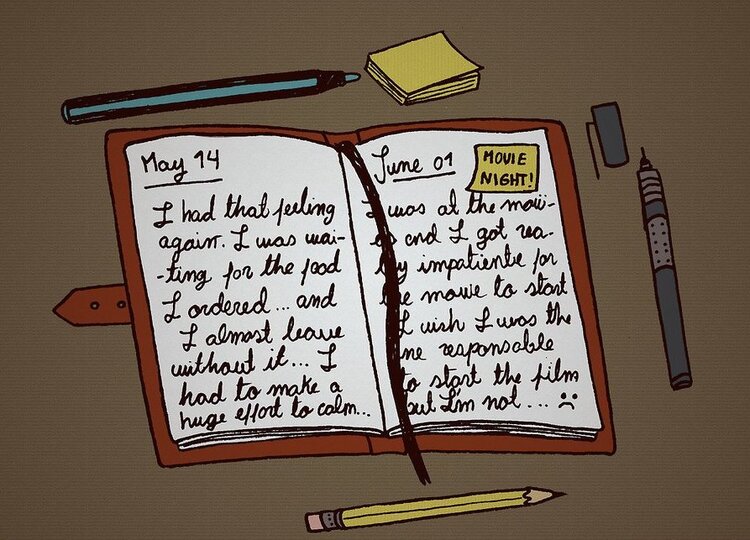 May 14
I had that feeling
again. I was wai-
-ting for the food
I ordered... and
I almost leave
without it... I
had to make a
huge effort to calm...
June 01
MOVIE
NIGHT!
I was at the movi-
es and I got rea-
lly impatiente for
the movie to start
I wish I was the
one responsable
to start the film
but I'm not... :(